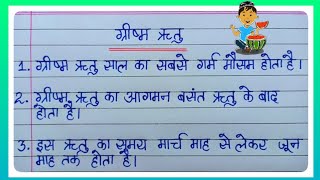 ग्रीष्म ऋतु
1. ग्रीष्म ऋतु साल का सबसे गर्म मौसम होता है।
2. ग्रीष्म ऋतु का आगमन बसंत ऋतु के बाद
होता है।
3. इस ऋतु का समय मार्च माह से लेकर जून
माह तक होता है।